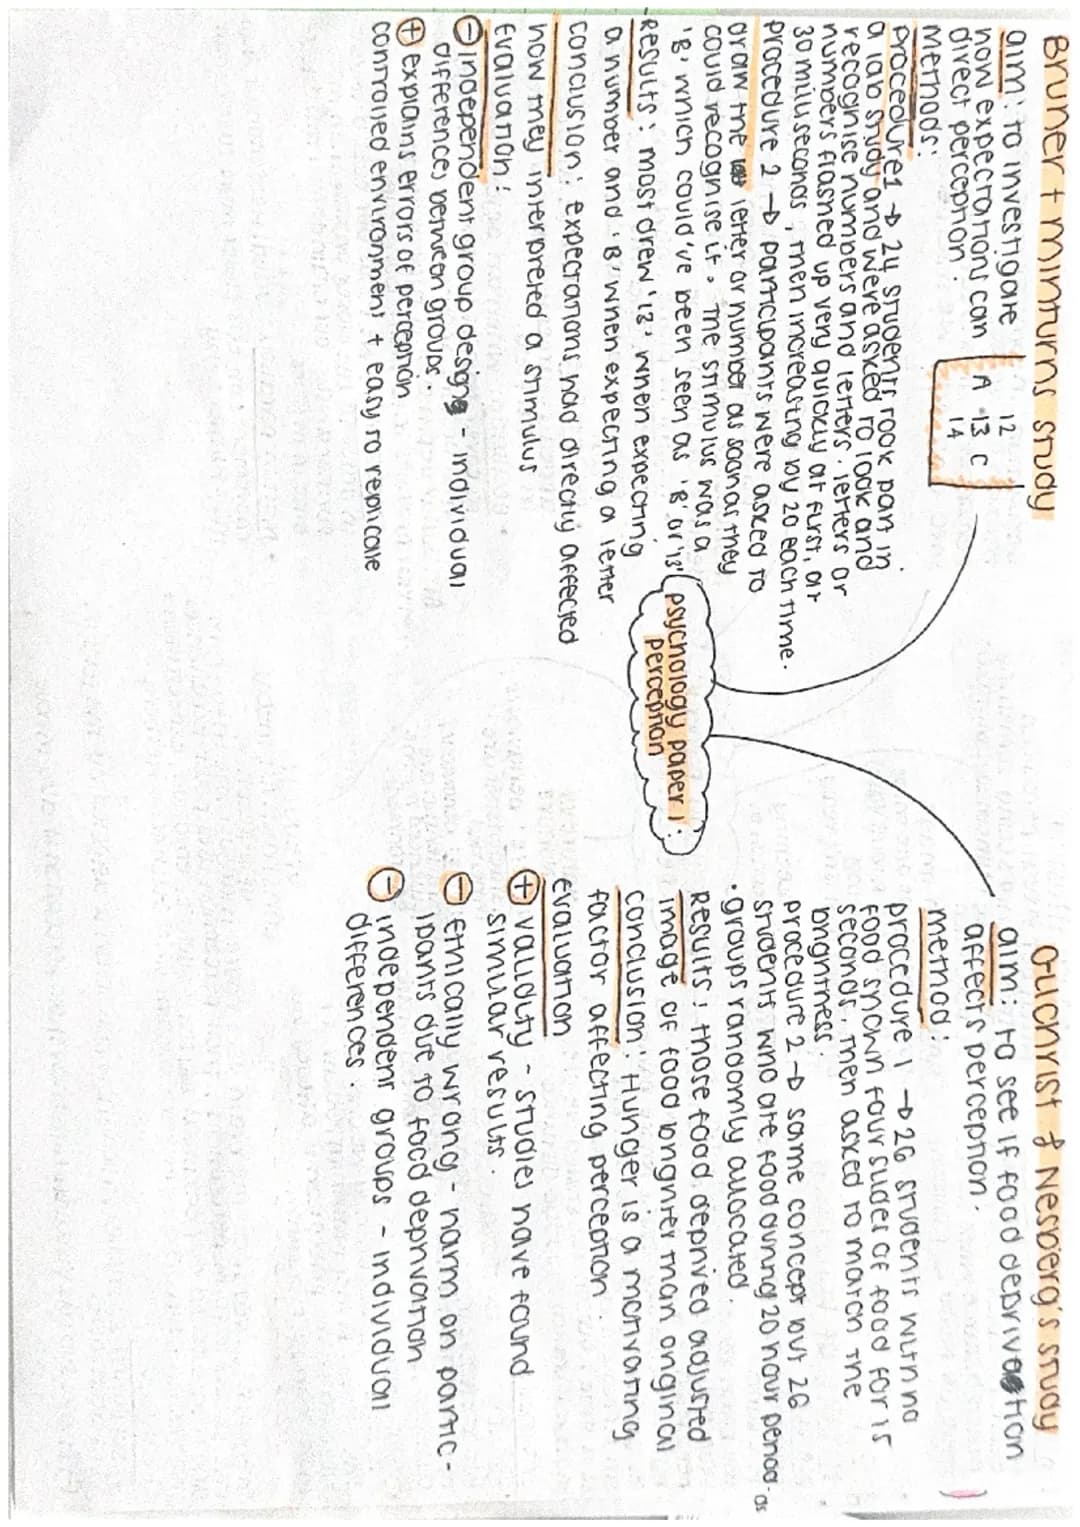 Bruner + minturns study
aim: to investigate
how expectations can
direct perception.
12
A 13 C
14
methods:
procedure1 → 24 students took part in
a lab study and were asked to look and
recognise numbers and letters. letters or
numbers flashed up very quickly at first, at
30 miliseconds, then increasing by 20 each time.
procedure 2 → participants were asked to
draw the letter or number as soon as they
could recognise it. The stimulus was a
'B' which could've been seen as 'B' or '13'
Results: most drew '13' when expecting
a number and 'B' when expecting a letter
conclusion: expectations had directly affected
how they interpreted a stimulus
Evaluation:
- independent group design - individual
differences between groups.
+ explains errors of perception
controlled environment + easy to replicate
psychology paper 1:
perception
Gilchrist & Nesberg's study
aim: to see if food deprivation
affects perception.
method:
procedure 1 → 26 students with no
food shown four slides of food for 15
seconds, then asked to match the
brightness.
procedure 2 → same concept but 26
students who ate food during 20 hour period. as
• groups randomly allocated.
Results: those food deprived adjusted
image of food brighter than original
conclusion: Hunger is a motivating
factor affecting perception.
evaluation
+ validity - studies have found
similar results.
- Ethically wrong - harm on partic-
ipants due to food deprivation
- independent groups - individual
differences.